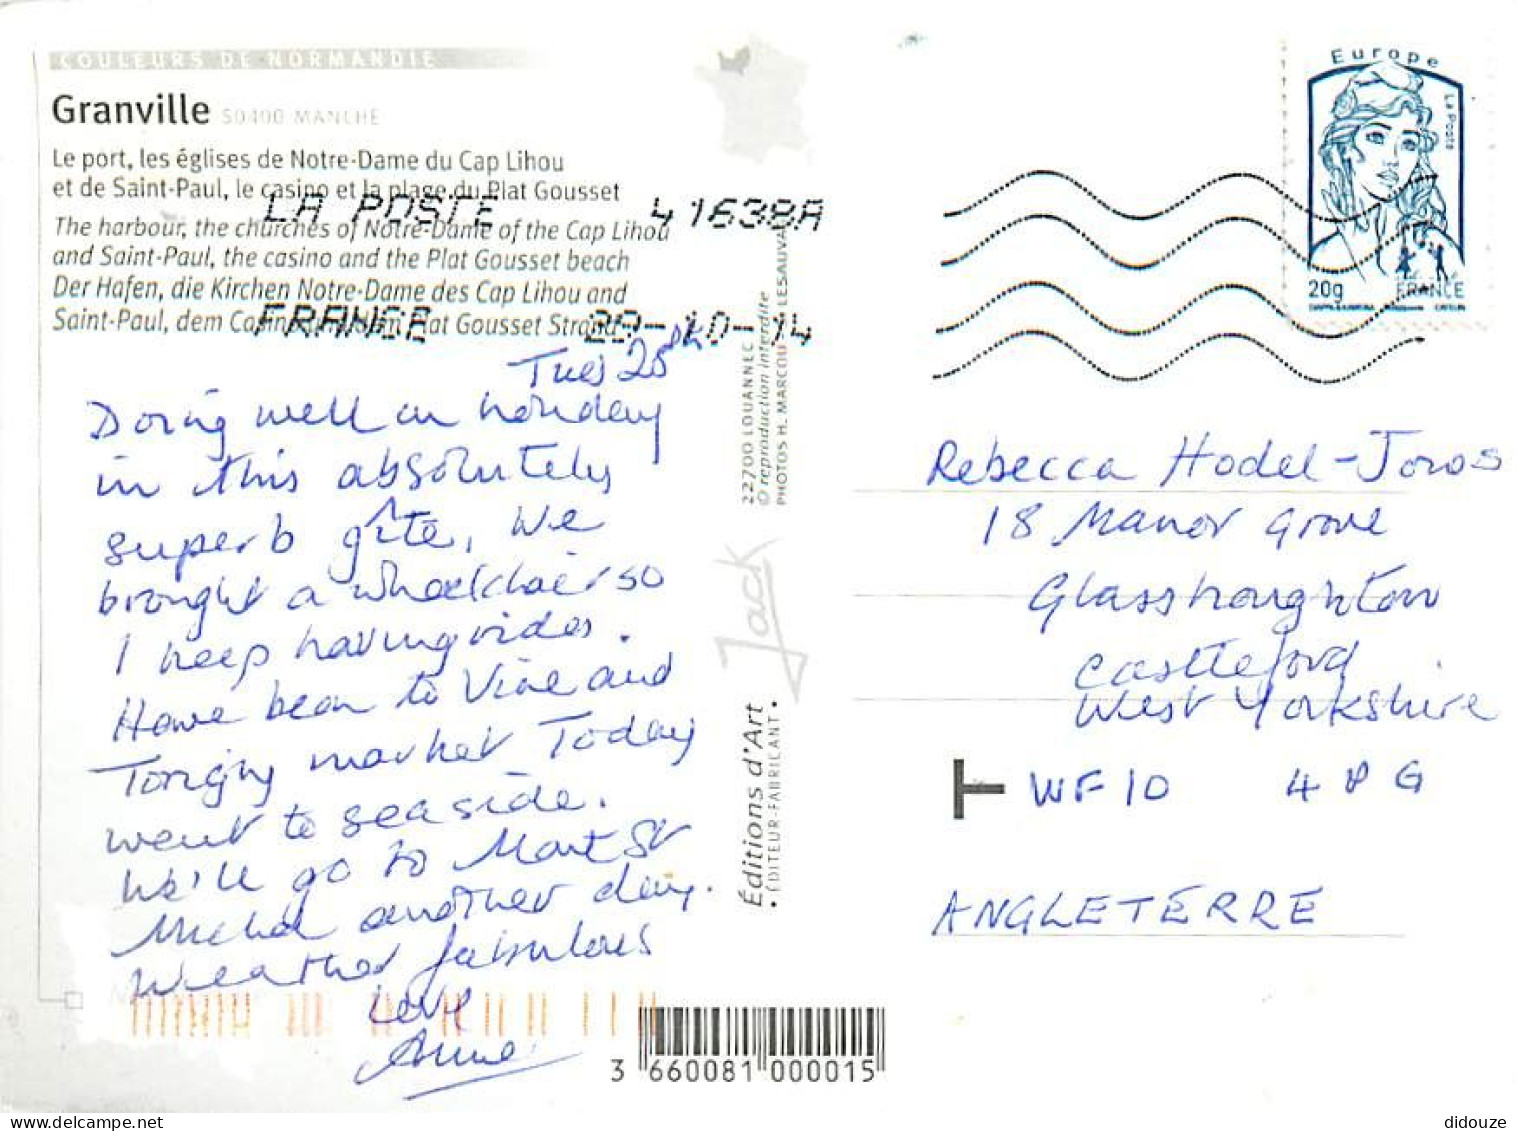 COULEURS DE NORMANDIE
Granville 50400 MANCHE
Le port, les églises de Notre-Dame du Cap Lihou
et de Saint-Paul, le casino et la plage du Plat Gousset
The harbour, the churches of Notre-Dame of the Cap Lihou
and Saint-Paul, the casino and the Plat Gousset beach
Der Hafen, die Kirchen Notre-Dame des Cap Lihou and
Saint-Paul, dem Plat Gousset Strand
LA POSTE 41638A
FRANCE 29-10-14
Tues 28th
Doing well on holiday
in this absolutely
superb gîte, We
brought a wheelchair so
I keep having rides.
Have been to Vire and
Torigny market Today
went to seaside.
We'll go to Mont St
Michel another day.
Weather fabulous
Love
Anne
22700 LOUANNEC
© reproduction interdite
PHOTOS H. MARCOU LESAUVAGE
Jack
Éditions d'Art
• ÉDITEUR-FABRICANT •
3 660081 000015
Europe
La Poste
20g FRANCE
Rebecca Hodel-Jonas
18 Manor Grove
Glasshoughton
Castleford
West Yorkshire
T WF10 4 G
ANGLETERRE
didouze